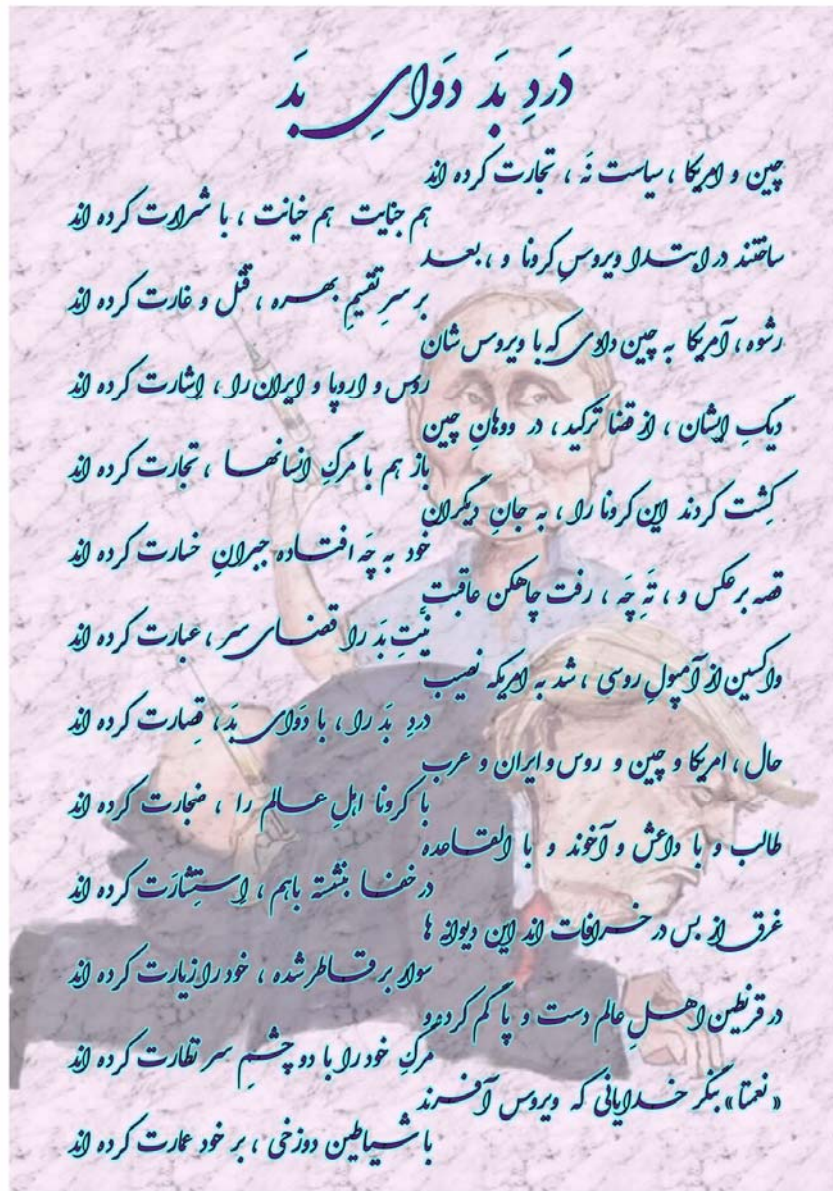 دَردِ بدَ دوَایِ بدَ
چین و امریکا ، سیاست نَه ، تجارت کرده اند
هم جنایت هم خیانت ، با شرارت کرده اند
ساختند در ابتدا ویروسِ کرونا و ، بعد
بر سرِ تقسیمِ بهره ، قتل و غارت کرده اند
رشوه ، آمریکا به چین دادی که با ویروس شان
روس و اروپا و ایران را ، اِشارت کرده اند
دیگِ ایشان ، از قضا ترکید ، در ووهانِ چین
باز هم با مرگِ انسانها ، تجارت کرده اند
کِشت کردند این کرونا را ، به جانِ دیگران
خود به چَه افتاده جبرانِ خسارت کرده اند
قصه برعکس و ، تَهِ چَه ، رفت چاهکن عاقبت
نیّتِ بدَ را قضای سر ، عبارت کرده اند
واکسین از آمپولِ روسی ، شد به امریکه نصیب
دردِ بدَ را ، با دوَای بدَ ، قِصارت کرده اند
حال ، امریکا و چین و روس و ایران و عرب
با کرونا اهلِ عالم را ، ضجارت کرده اند
طالب و با داعش و آخوند و با القاعده
در خفا بنشسته باهم ، اِستِشارَت کرده اند
غرق از بس در خرافات اند این دیوانه ها
سوار بر قاطر شده ، خود را زیارت کرده اند
در قرنطین اهلِ عالم دست و پا گم کرده و
مرگِ خود را با دو چشمِ سر نظارت کرده اند
« نعمتا » بنگر خدایانی که ویروس آفرند
با شیاطین دوزخی ، بر خود عمارت کرده اند